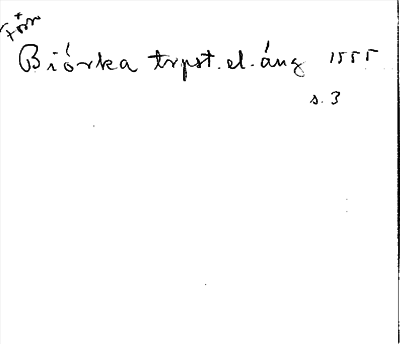 Biórka trpst. el. äng 1555
s. 3